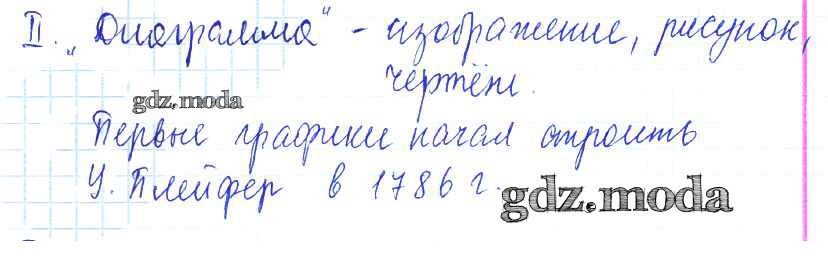 II. „Диаграмма“ - изображение, рисунок,
чертёж.
gdz.moda
Первые графики начал строить
У. Плейфер в 1786 г.
gdz.moda